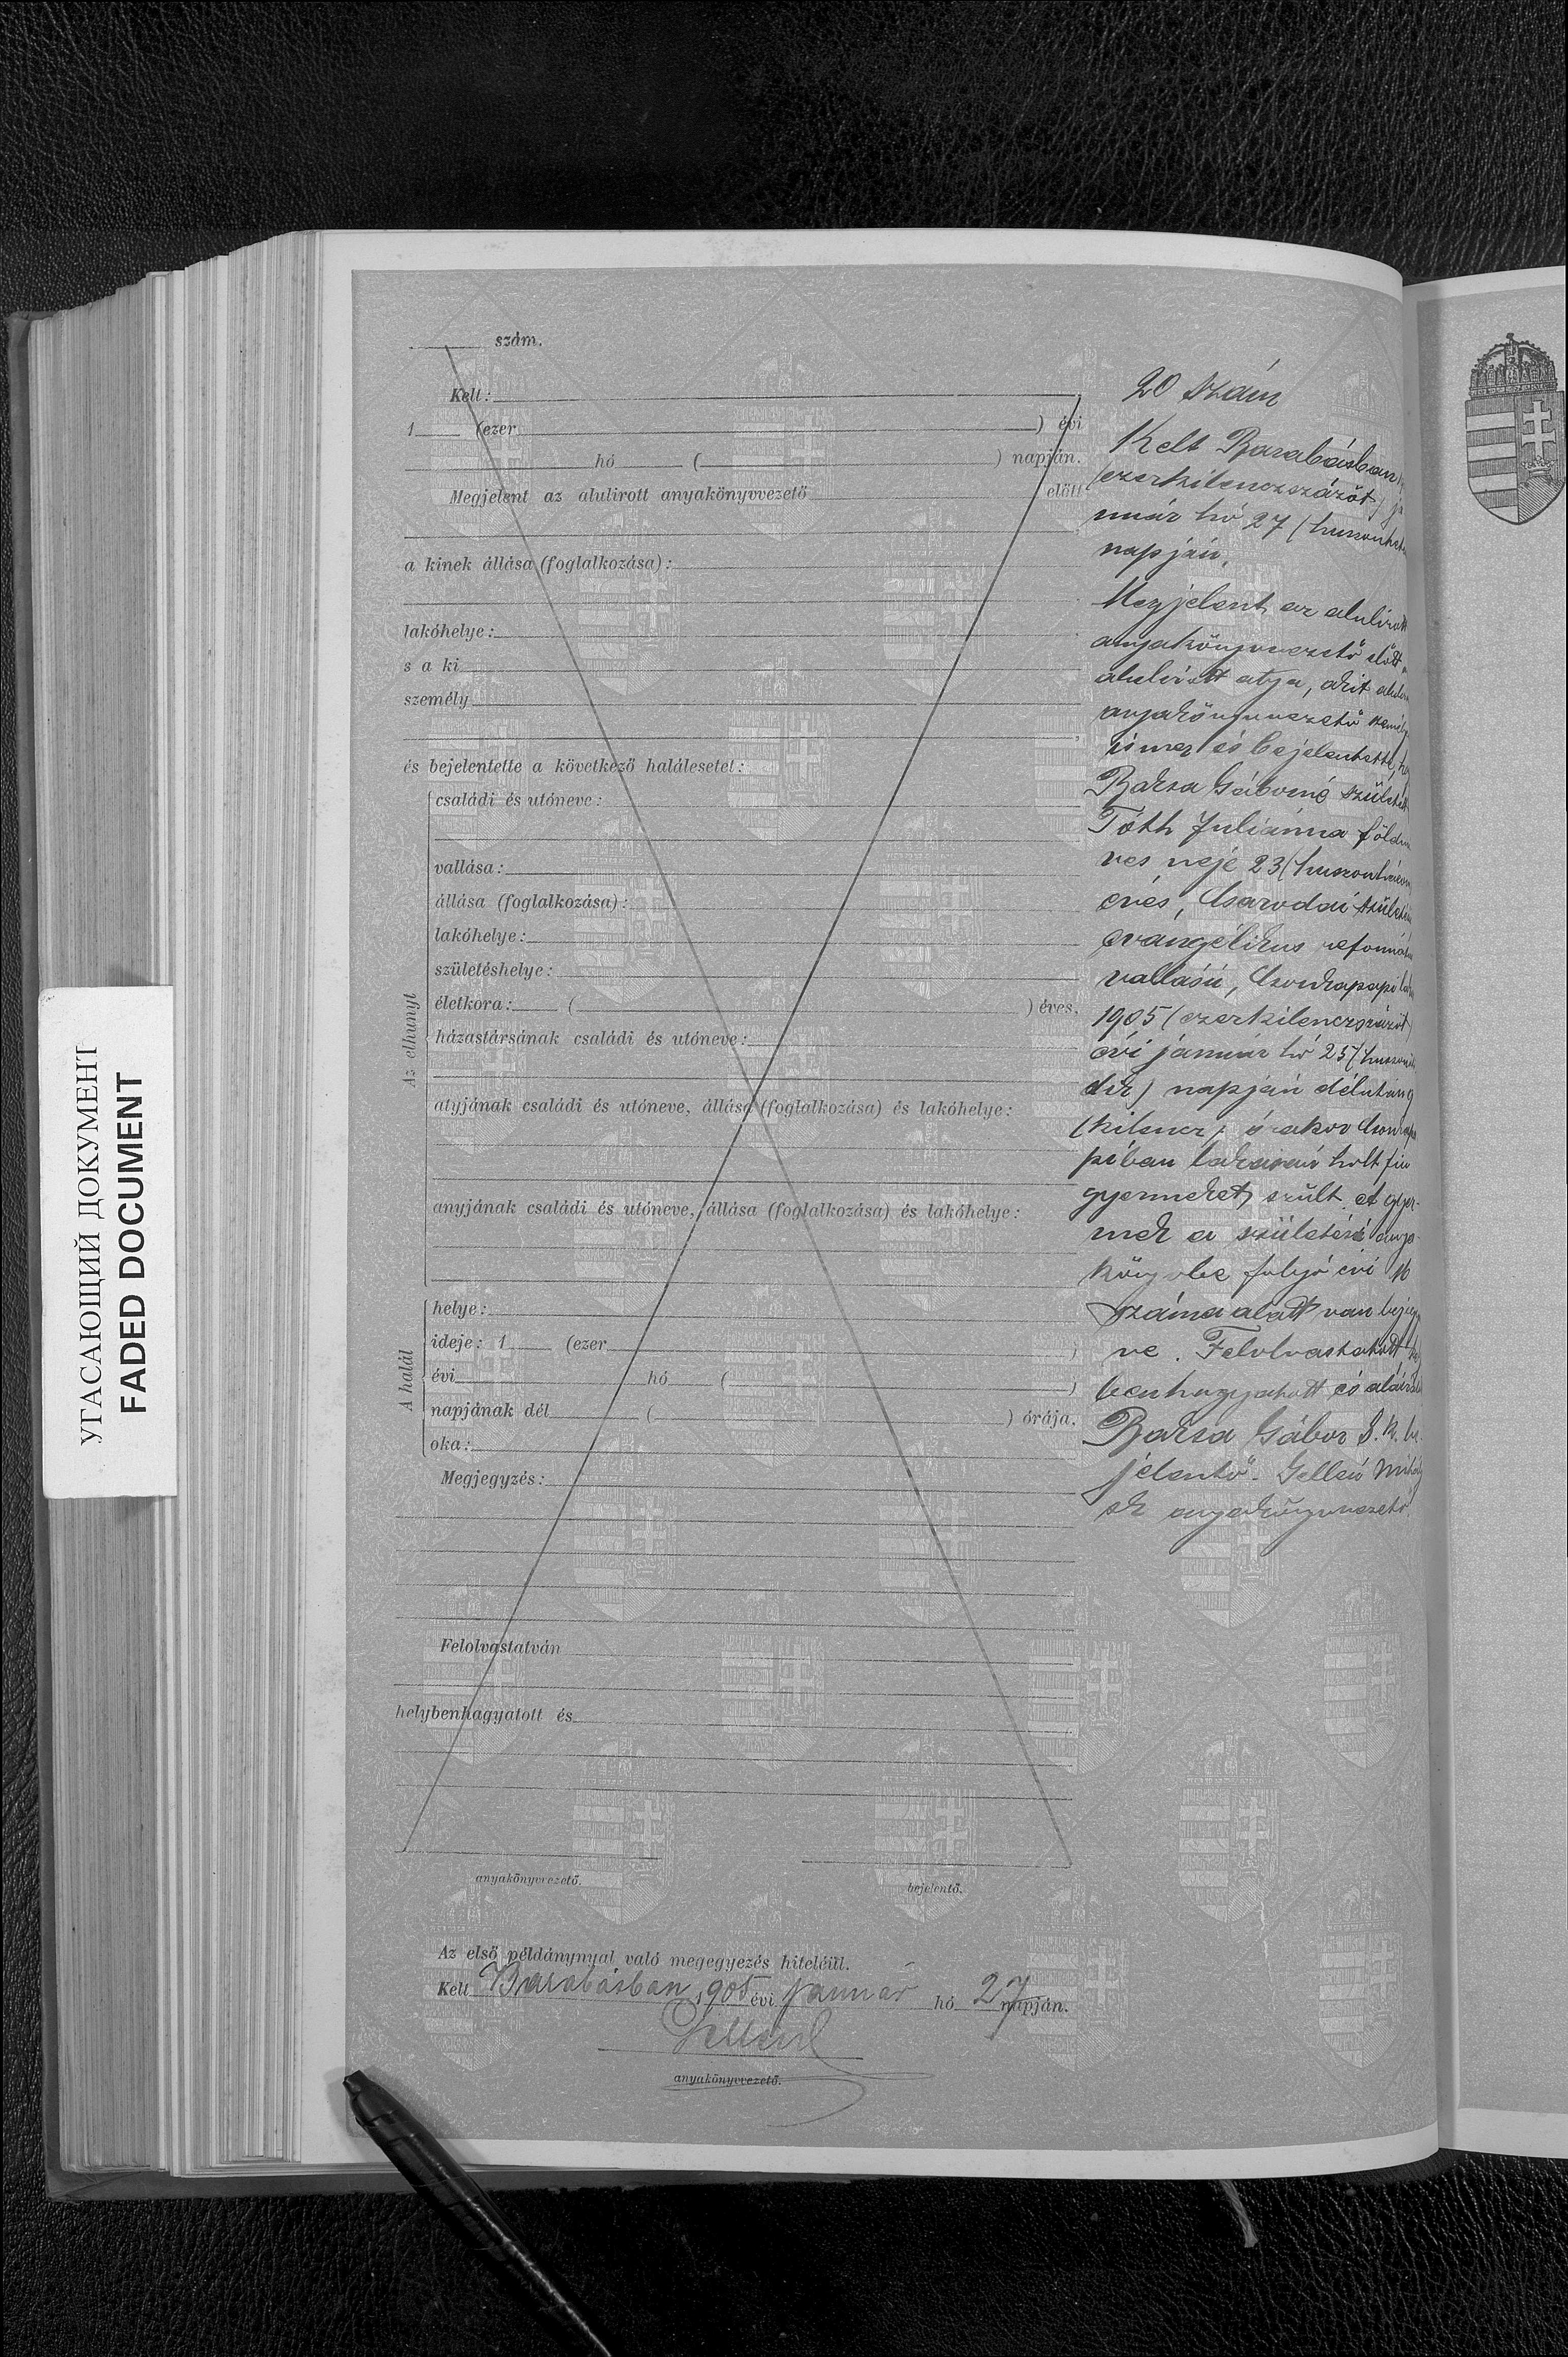 УГАСАЮЩИЙ ДОКУМЕНТ
FADED DOCUMENT
szám.
Kelt:
1 (ezer ) évi
hó ( ) napján.
Megjelent az alulirott anyakönyvvezető előtt
a kinek állása (foglalkozása):
lakóhelye:
s a ki
személy
és bejelentette a következő halálesetet:
Az elhunyt
családi és utóneve:
vallása:
állása (foglalkozása):
lakóhelye:
születéshelye:
életkora: ( ) éves,
házastársának családi és utóneve:
atyjának családi és utóneve, állása (foglalkozása) és lakóhelye:
anyjának családi és utóneve, állása (foglalkozása) és lakóhelye:
A halál
helye:
ideje: 1 (ezer )
évi hó ( )
napjának dél ( ) órája.
oka:
Megjegyzés:
Felolvastatván
helybenhagyatott és
anyakönyvvezető.
bejelentő.
20 szám
Kelt Barabásban
(ezerkilenczszázöt) ja
nuár hó 27 (huszonhet
napján.
Megjelent az alulirott
anyakönyvvezető előtt
alulirott atya, akit
anyakönyvvezető személy
ismer és bejelentette,
Baksa Gáborné született
Tóth Juliánna földm
ves neje 23 (huszonhárom
éves, Csarodai születésü
evangélikus reformátu
vallású, Csonkapapi
1905 (ezerkilenczszázöt)
évi január hó 25 (huszonö
dik) napján délután 9
(kilencz) órakor Csonkapa
piban lakásán holt fiu
gyermeket szült. A gyer-
mek a születési anya-
könyvbe folyó évi 16
száma alatt van bejegy
ve. Felolvastatott,
benhagyatott és aláirat
Baksa Gábor s. k. be-
jelentő. Gellén Mihály
sk anyakönyvvezető
Az első példánynyal való megegyezés hiteléül.
Kelt Barabásban, 905 évi január hó 27 napján.
Gellén
anyakönyvvezető.